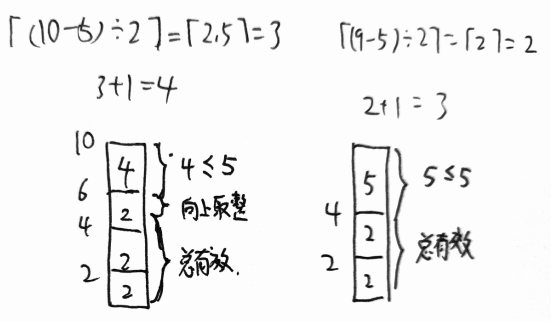 ⌈(10-5)÷2⌉=⌈2.5⌉=3
3+1=4
10
6
4
2
4
2
2
2
4≤5
向上取整
总有效.
⌈(9-5)÷2⌉=⌈2⌉=2
2+1=3
4
2
5
2
2
5≤5
总有效